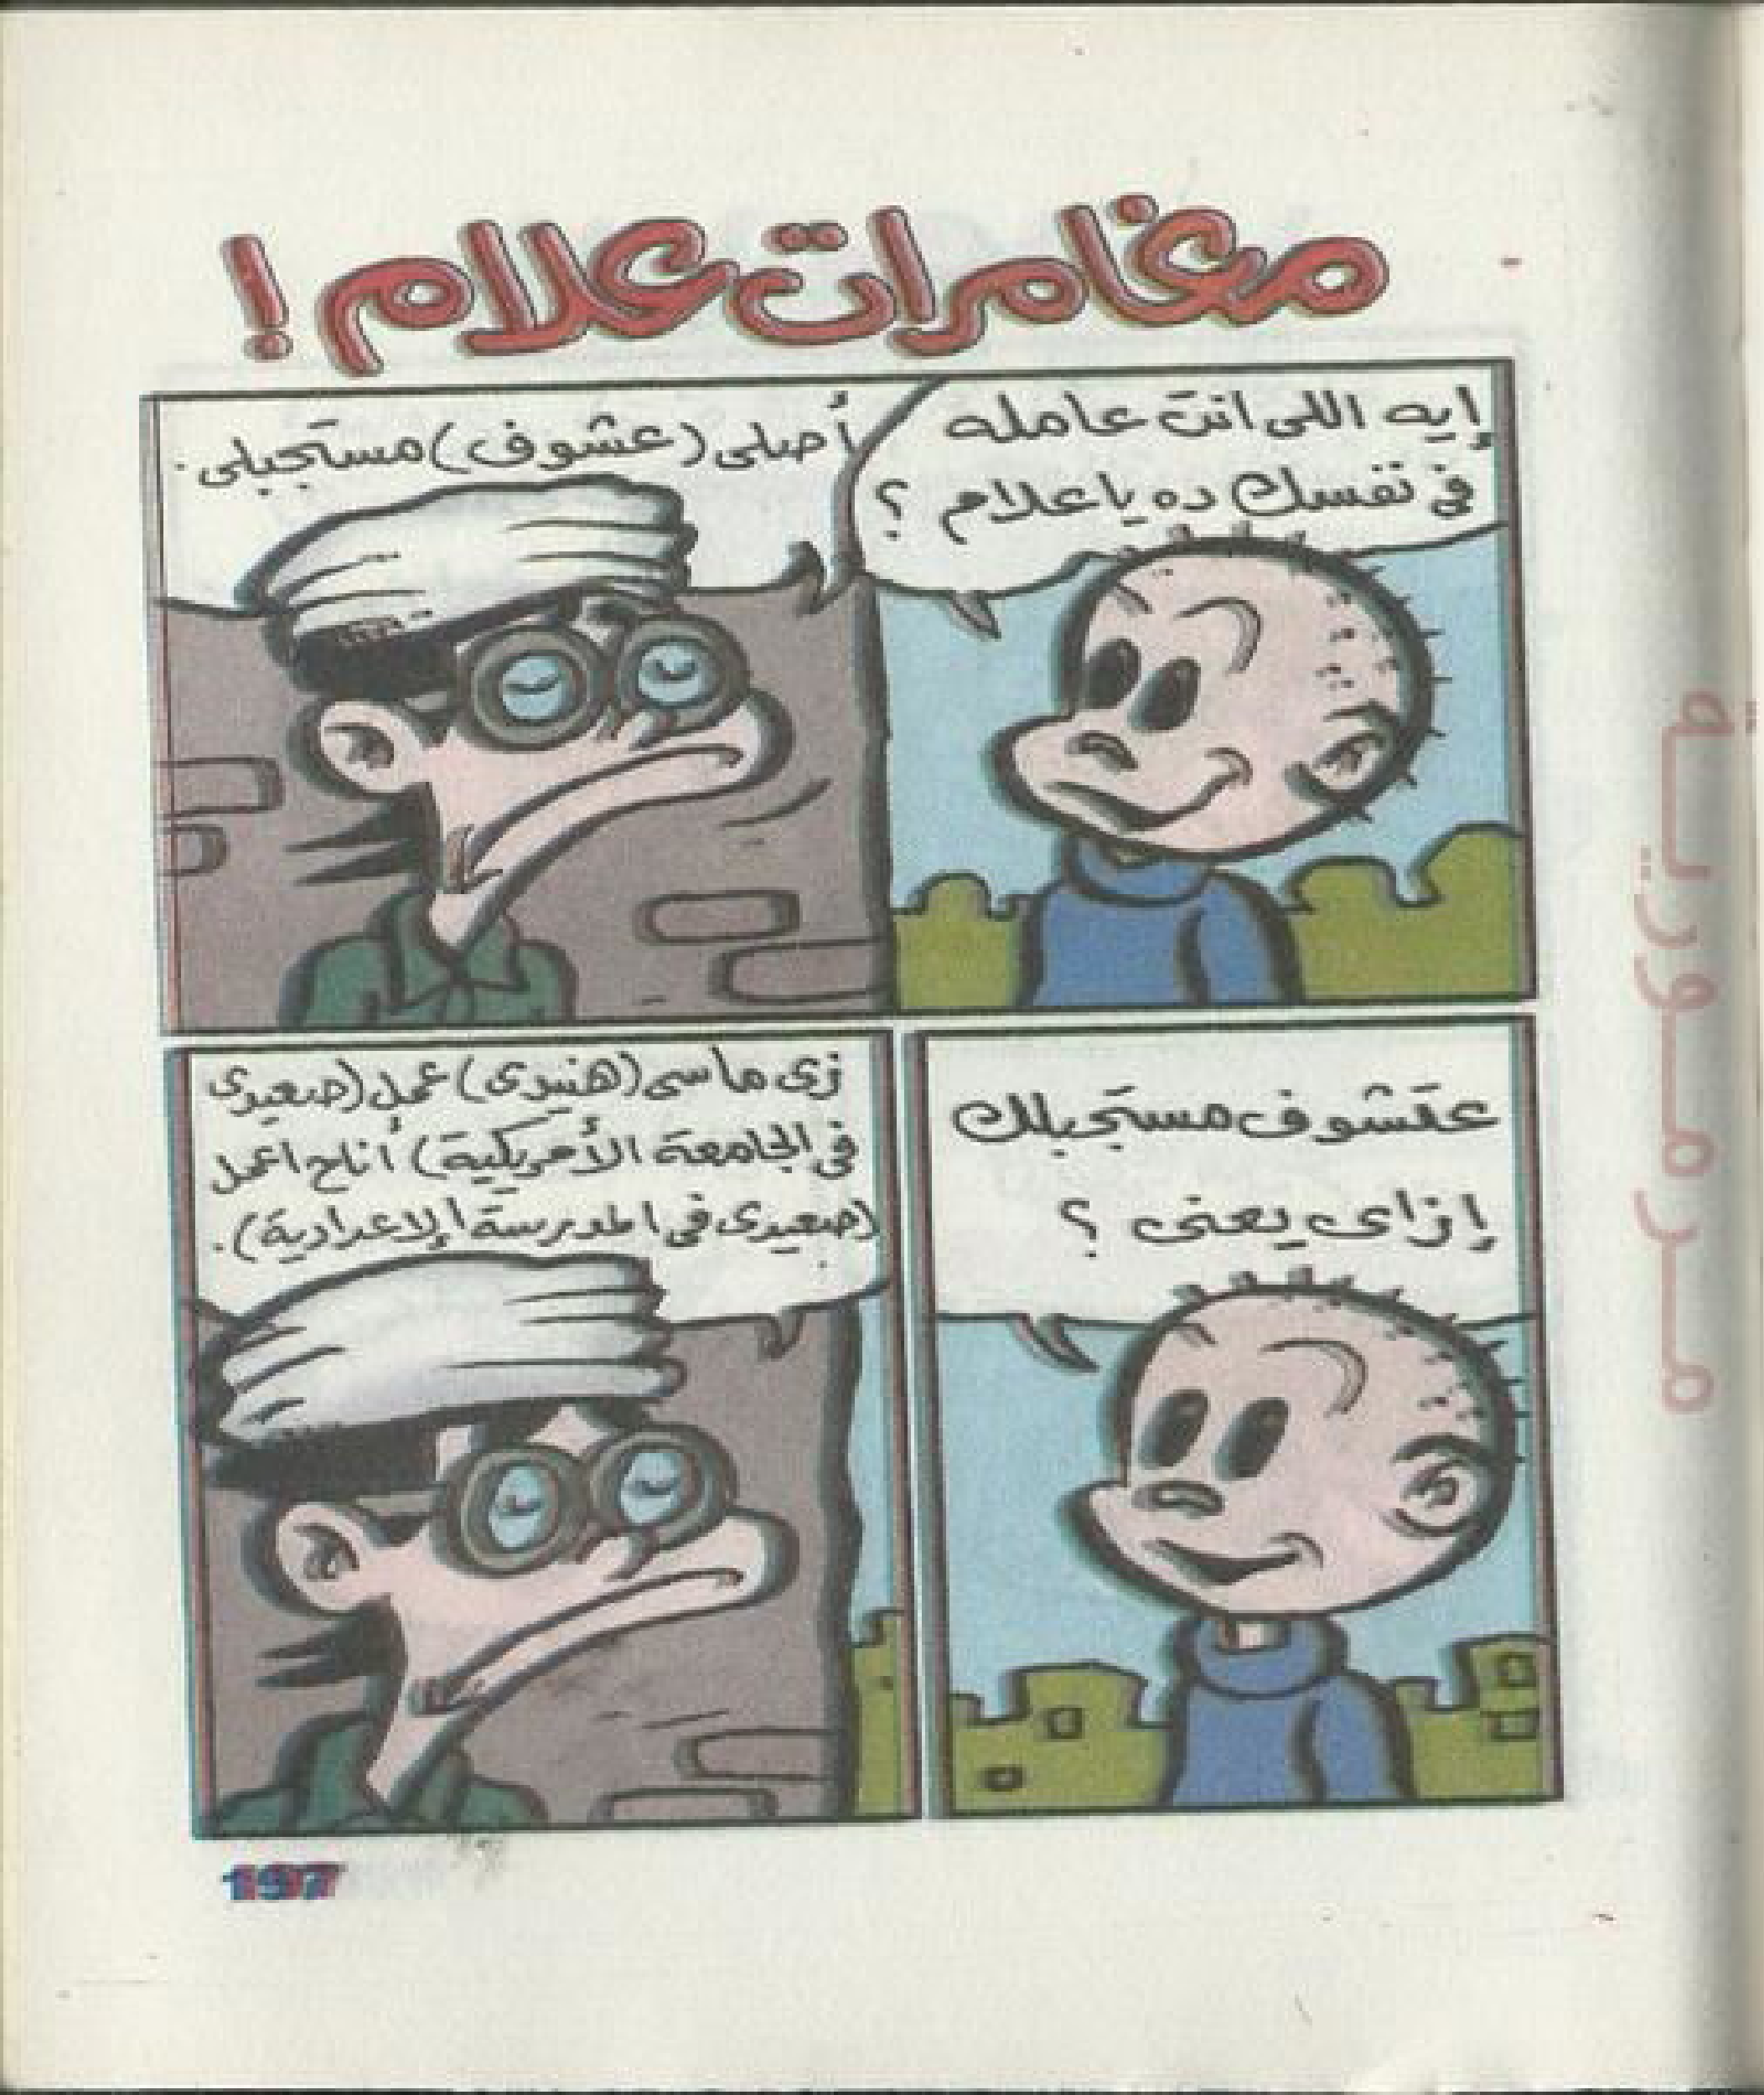 مغامرات علام !
إيه اللى انت عامله
فى نفسك ده يا علام ؟
أصلى (عشوف) مستجبلى .
عتشوف مستجبلك
إزاى يعنى ؟
زى ما سى (هنيدى) عمل (صعيدى
فى الجامعة الأمريكية) أناح اعمل
(صعيدى فى المدرسة الإعدادية) .
197
مدرمورية